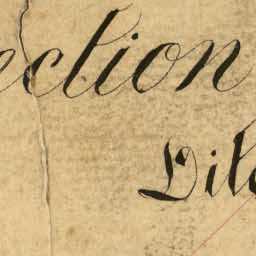 ection
Dile